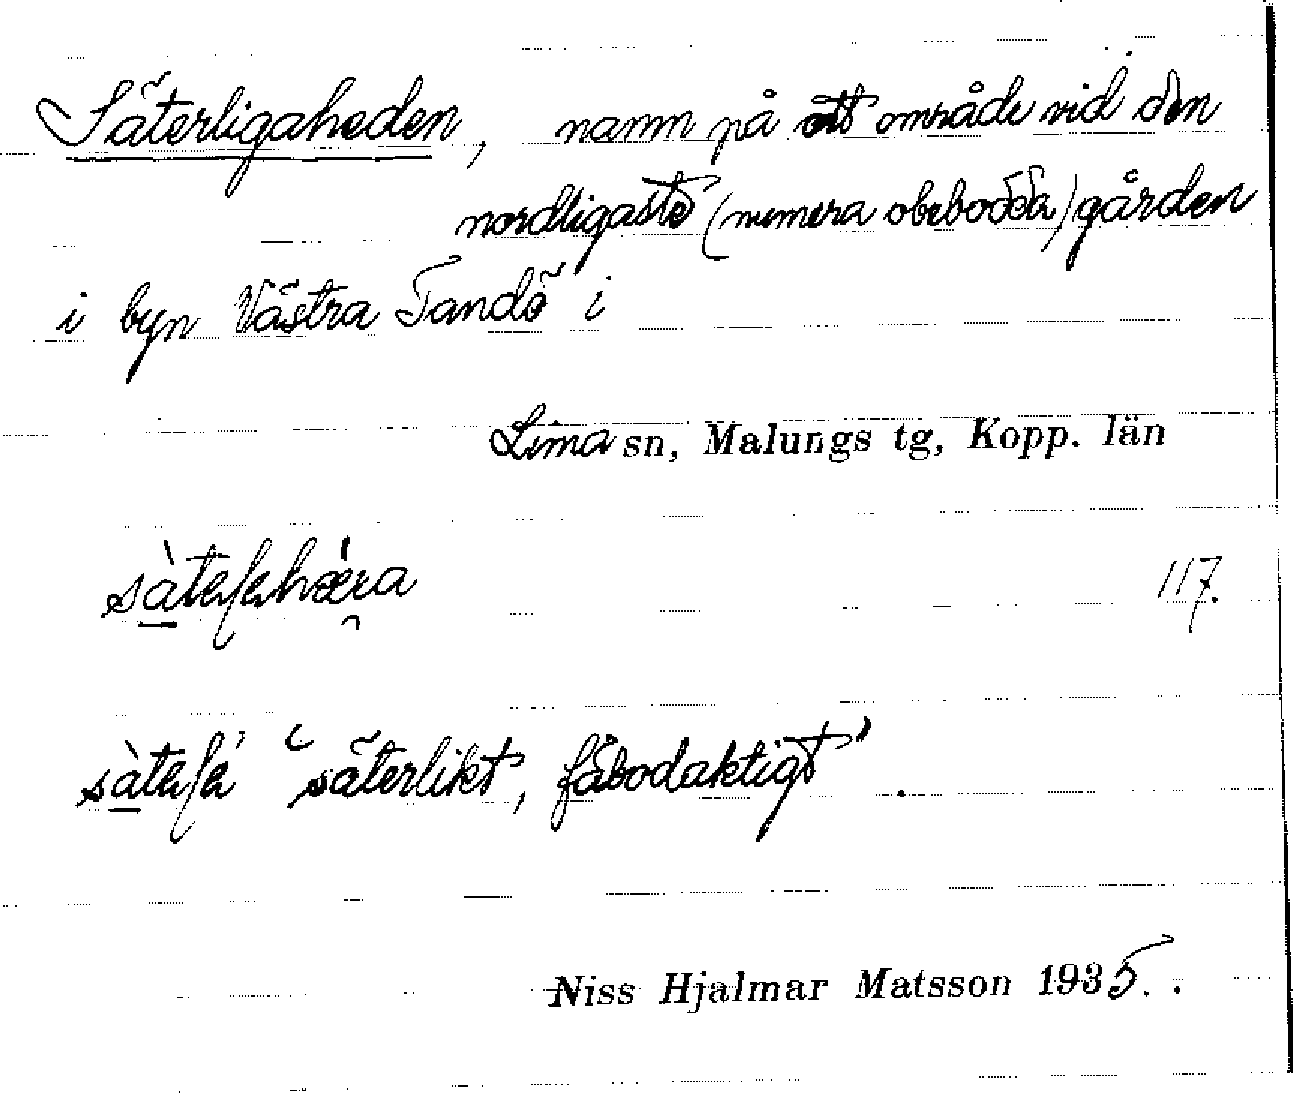 Säterligaheden, namn på ett område vid den
nordligaste (numera obebodda) gården
i byn Västra Tandö i
Lima sn, Malungs tg, Kopp. län
117.
säterlikt, fäbodaktigt' .
Niss Hjalmar Matsson 1935. .